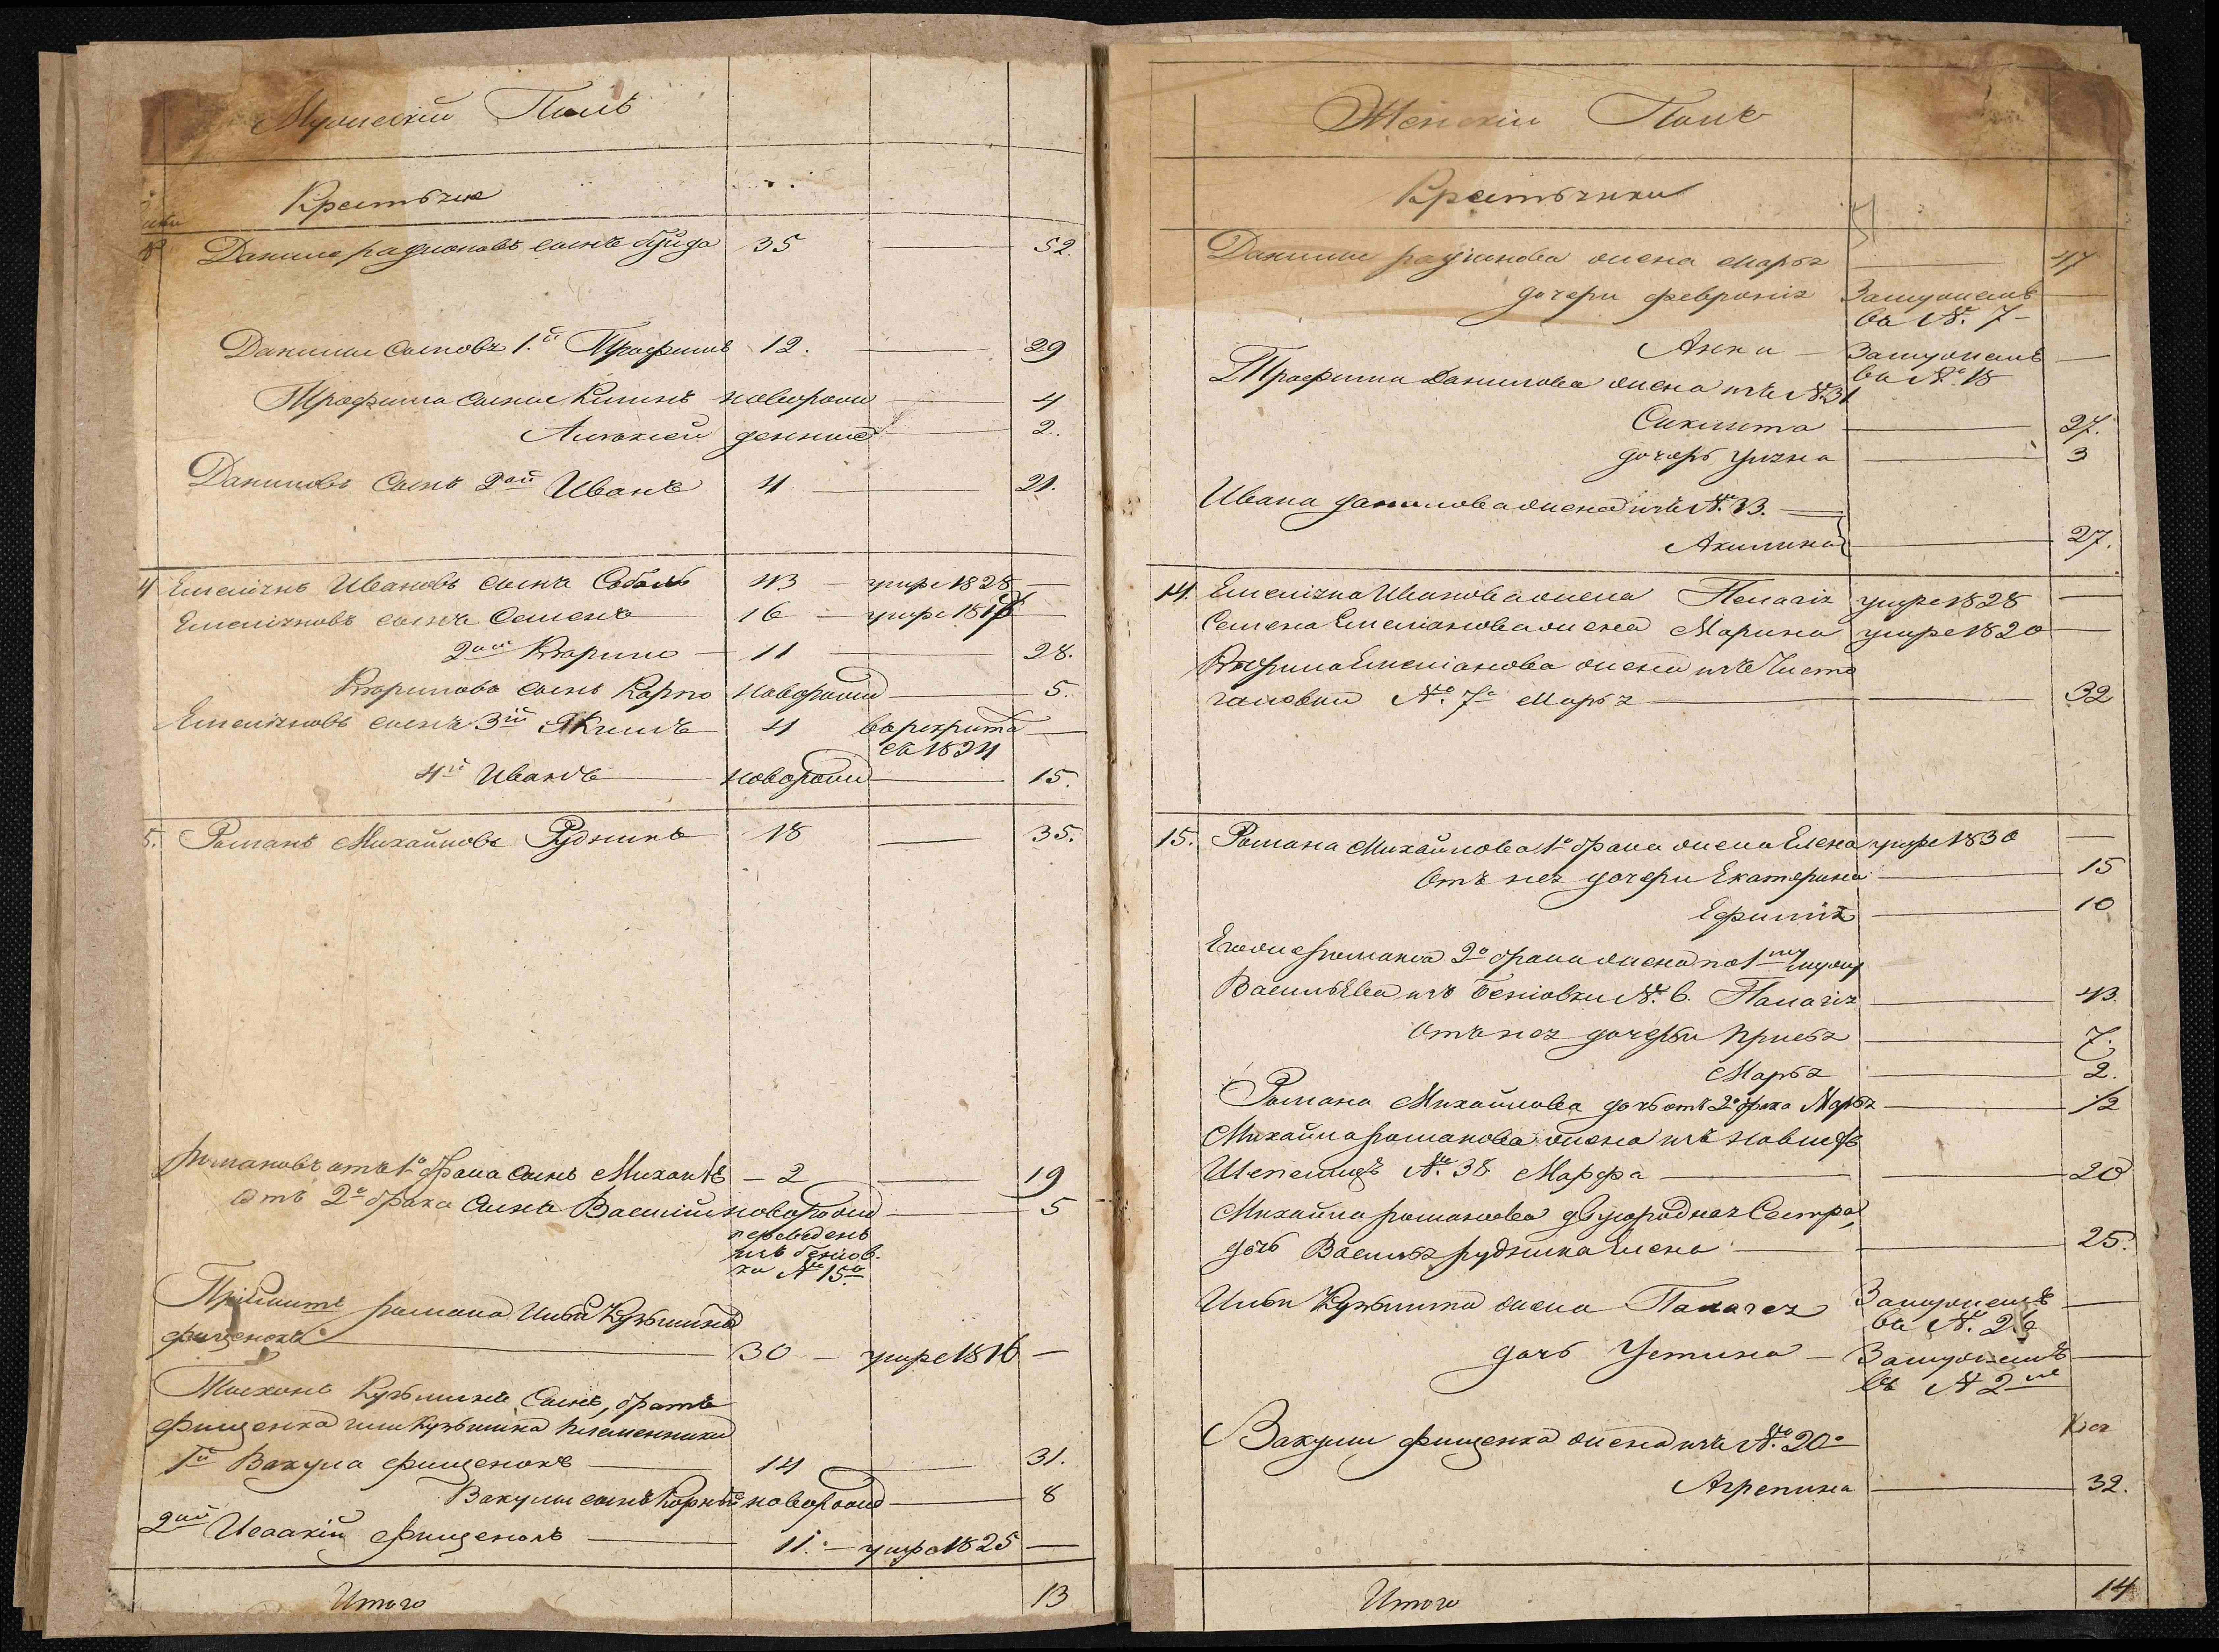 Мужескій Полъ
Крестьяне
Данило радионовъ сынъ буйда 35 52.
Данилы сыновъ 1.й Трофимъ 12. 29
Трофима сынъ новорож 4
Алексей денные 2.
Даниловъ Сынъ 2ой Иванъ 4 21.
4 Емеліянъ Ивановъ сынъ Соболь 43 умре 1828
Емеліяновъ сынъ Семенъ 16 умре
2ой 11 28.
сынъ Карпо новорожд 5.
Емеліяновъ сынъ 3ій Якимъ 4 въ рекрута
съ 1824
4й Иванъ новорожд 15.
5. Романъ Михайловъ Рудникъ 18 35.
Романовъ отъ 1о брака сынъ Михаилъ 2 19
Отъ 2о брака сынъ Василій новорожд 5
переведенъ
изъ
ки № 15о
Пріймитъ романа Илья Кузьминъ
фищенокъ 30 умре 1816
Кузьминъ Сынъ, братъ
фищенка или Кузьмина племенники
1й Вакула фищенокъ 14 31.
Вакулы сынъ Корній новорожд 8
2ой Исаакій фищенокъ 11. умре 1825
Итого 13
Женскій Полъ
Крестьянки
Данилы радіонова жена Марья 47
дочери Февронія Замужемъ
въ №. 7
Анна Замужемъ
въ №. 18
Трофима Данилова жена изъ № 31
27.
дочерь 3
Ивана данилова жена изъ №. 33.
Акилина 27.
14. Емеліяна Иванова жена Пелагія умре 1828
Семена Емеліанова жена Марина умре 1820
Емеліанова жена изъ Чисто
галовки №. 7о Марья 32
15. Романа Михайлова 1о брака жена Елена умре 1830
Отъ нея дочери Екатерина 15
Ефимія 10
Егоже романа 2о брака жена по 1му мужу
Васильева изъ №. 6. Палагія 43.
Отъ нея дочери 7.
Марья 2.
Романа Михайлова дочь отъ 2о брака Марья 1/2
Михайла романова жена изъ
Шепеличъ №. 38 Марфа 20
Михайла романова двуюродная Сестра,
дочь Василья рудника Елена 25.
Ильи Кузьмина жена Палагея Замужемъ
въ №.
дочь Устина Замужемъ
въ № 2
Вакулы фищенка жена изъ №. 20о
Агрепина 32.
Итого 14